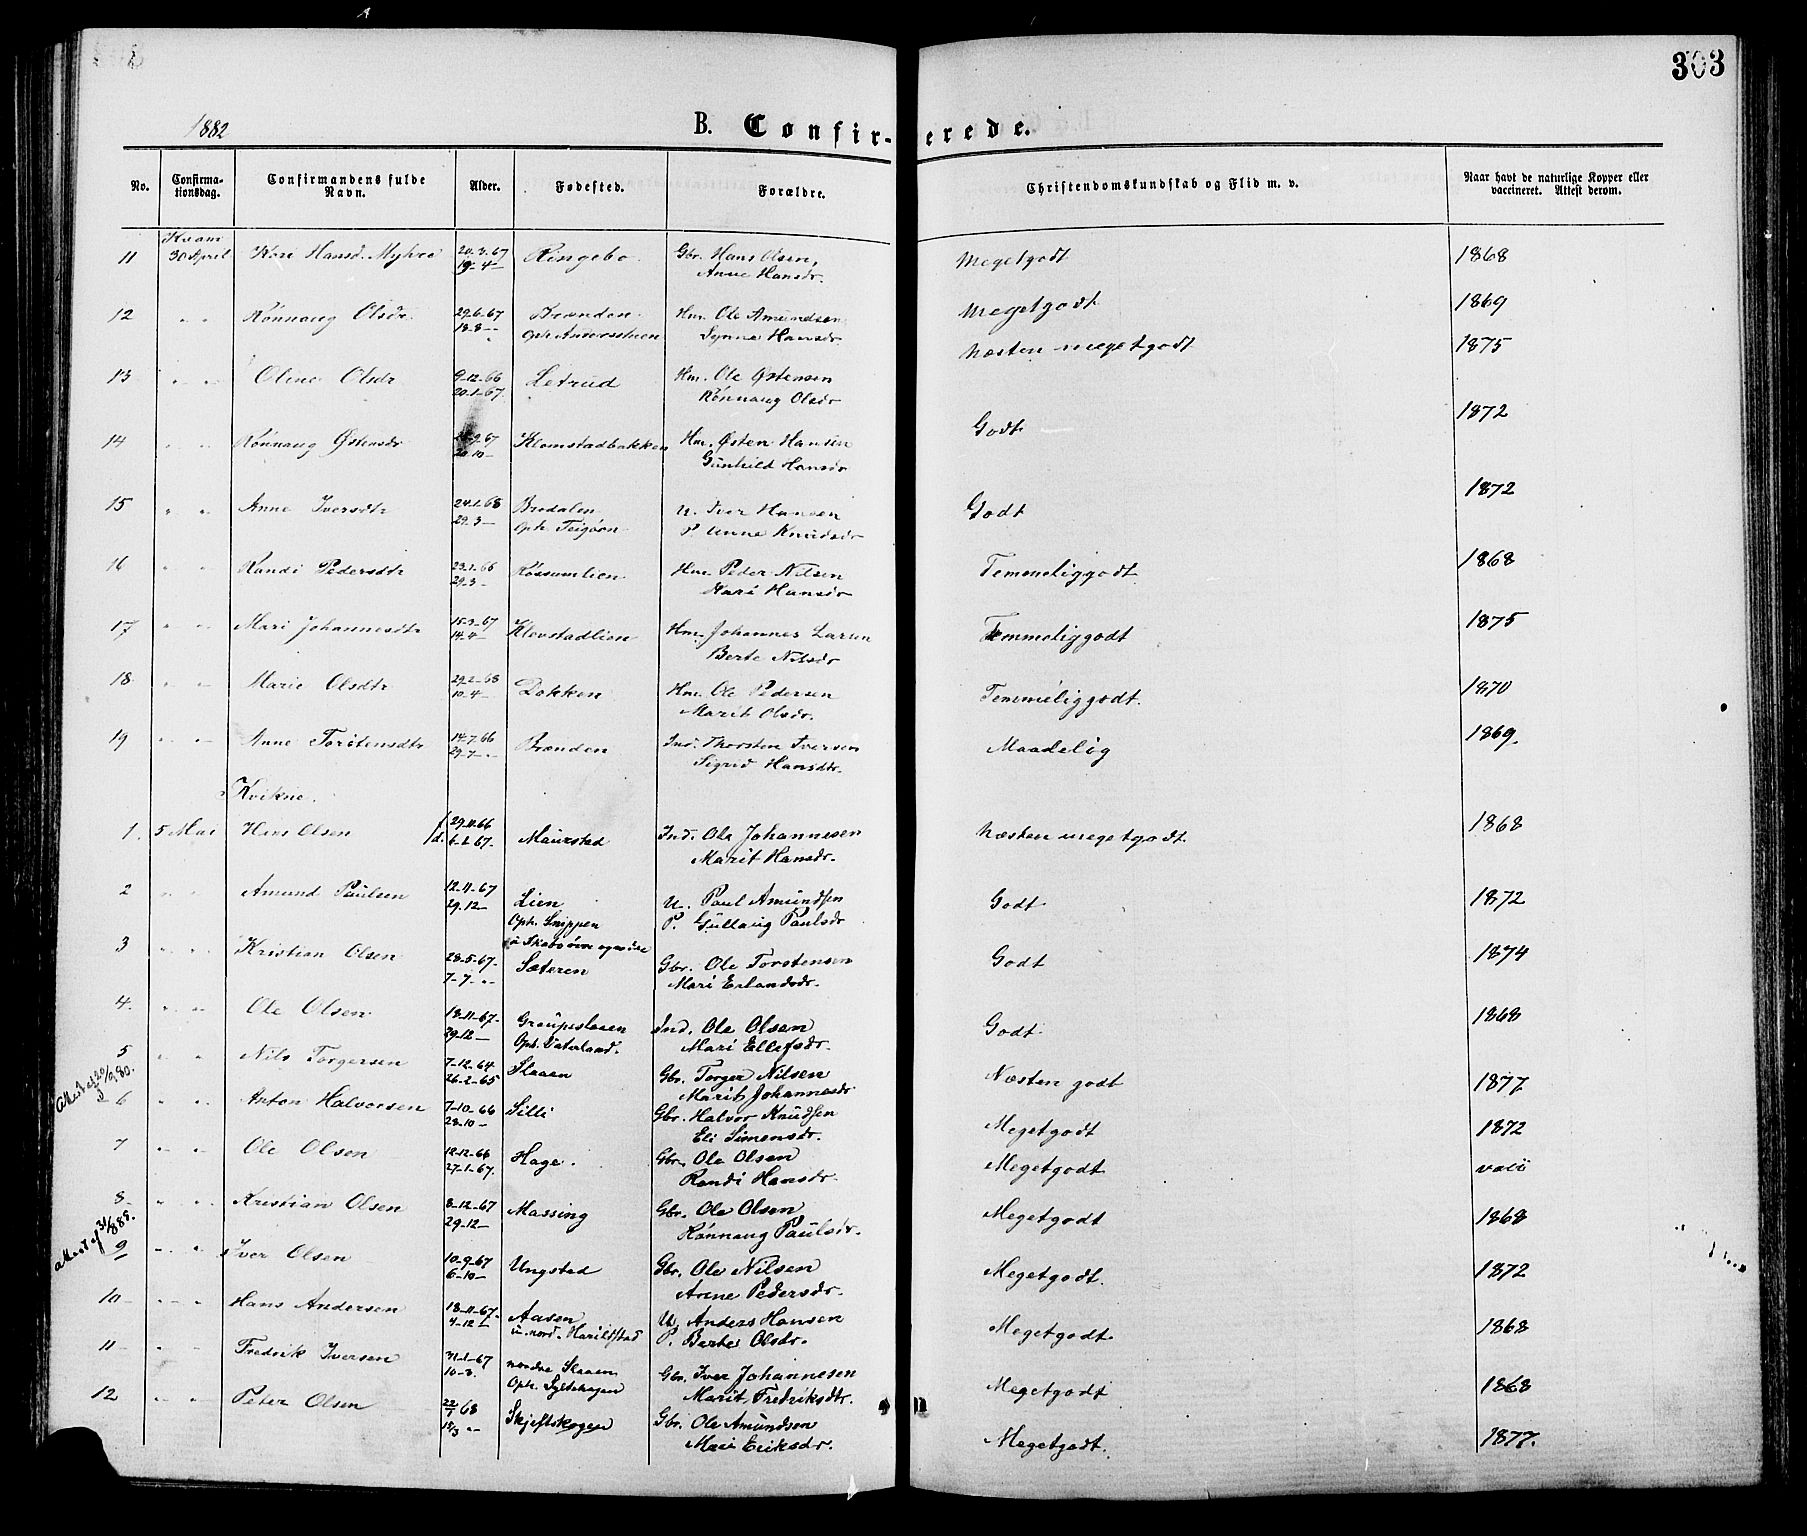 303
1882
B. Confirmerede.
No. Confirmationsdag. Confirmandens fulde Navn. Alder. Fødested. Forældre. Christendomskundskab og Flid m. v. Naar havt de naturlige Kopper eller vaccineret. Attest derom.
Kvam
11 30 April Kari Hansd. Myhre 20-3-67 Ringebo Gbr. Hans Olsen, Megetgodt 1868
19-4- Anne Hansdr.
12 " " Rønnaug Olsdr. 29-6-67 Brænden Hm. Ole Amundsen Megetgodt 1869
18-8- oph. Synne Hansdr
13 " " Oline Olsdr 9-12-66 Letrud Hm. Ole Østensen Næsten megetgodt 1875
20-1-67. Rønnaug Olsdr
14 " " Rønnaug Østensdr -9-67 Klomstadbakken Hm. Østen Hansen Godt 1872
20-10- Gunhild Hansdr
15 " " Anne Iversdtr 24-1-68 Bredalen U. Iver Hansen Godt 1872
29-3- oph. Teigøen P. Anne Knudsdr
16 " " Randi Pedersdtr 23-1-66 Røssumlien Hm. Peder Nilsen Temmeliggodt 1868
29-3- Kari Hansdr
17 " " Mari Johannesdtr 15-3-67 Klevstadlien Hm. Johannes Larsen Temmeliggodt 1875
14-4- Berte Nilsdr
18 " " Marie Olsdtr 29-2-68 Dokken Hm. Ole Pedersen Temmeliggodt. 1870
10-4- Marit Olsdr.
19 " " Anne Torstensdtr 14-7-66 Brænden Ind. Thorsten Iversen Maadelig 1869.
29-7- Sigrid Hansdtr.
Kvikne.
1. 5 Mai Hans Olsen f 29-11-66 Maurstad Ind. Ole Johannesen Næsten megetgodt. 1868
d. 6-1-67. Marit Hansdr.
2 " " Amund Paulsen 12-11-67 Lien U. Paul Amundsen Godt 1872
29-12- Oph. Snippen P. Gullaug Paulsdr
3 " " Kristian Olsen 28-5-67 Sæteren Gbr. Ole Torstensen Godt 1874
7-7- Mari Erlandsdr.
4. " " Ole Olsen 18-11-67 Graupeslaaen Ind. Ole Olsen Godt 1868
29-12- Oph. Vaterland. Mari Ellefsdr.
5 " " Nils Torgersen 7-12-64 Slaaen Gbr. Torger Nilsen Næsten godt 1877
26-2-65 Marit Johannesdr
Attest 20/9 80.
6 " " Anton Halvorsen 7-10-66 Silli Gbr. Halvor Knudsen Megetgodt 1872
28-10- Eli Simensdr.
7 " " Ole Olsen 12-12-66 Hage. Gbr. Ole Olsen Megetgodt
27-1-67. Randi Hansdr.
8 " " Kristian Olsen 8-12-67 Massing Gbr. Ole Olsen Megetgodt 1868
29-12- Rønnaug Paulsdr.
Attest 31/8 85.
9 " " Iver Olsen 10-9-67 Ungstad Gbr. Ole Nilsen Megetgodt. 1872
6-10- Anne Pedersdr.
10 " " Hans Andersen 18-11-67 Aasen U. Anders Hansen Megetgodt. 1868
4-12- u. nord. Harildstad P. Berte Olsdr.
11 " " Fredrik Iversen 31-1-67 nordre Slaaen Gbr. Iver Johannesen Megetgodt 1868
10-3. Oph. Marit Fredriksdtr.
12 " " Peter Olsen 22/1 68 Skjeftskogen Gbr. Ole Amundsen Megetgodt. 1877.
15/3 " Mari Eriksdr.